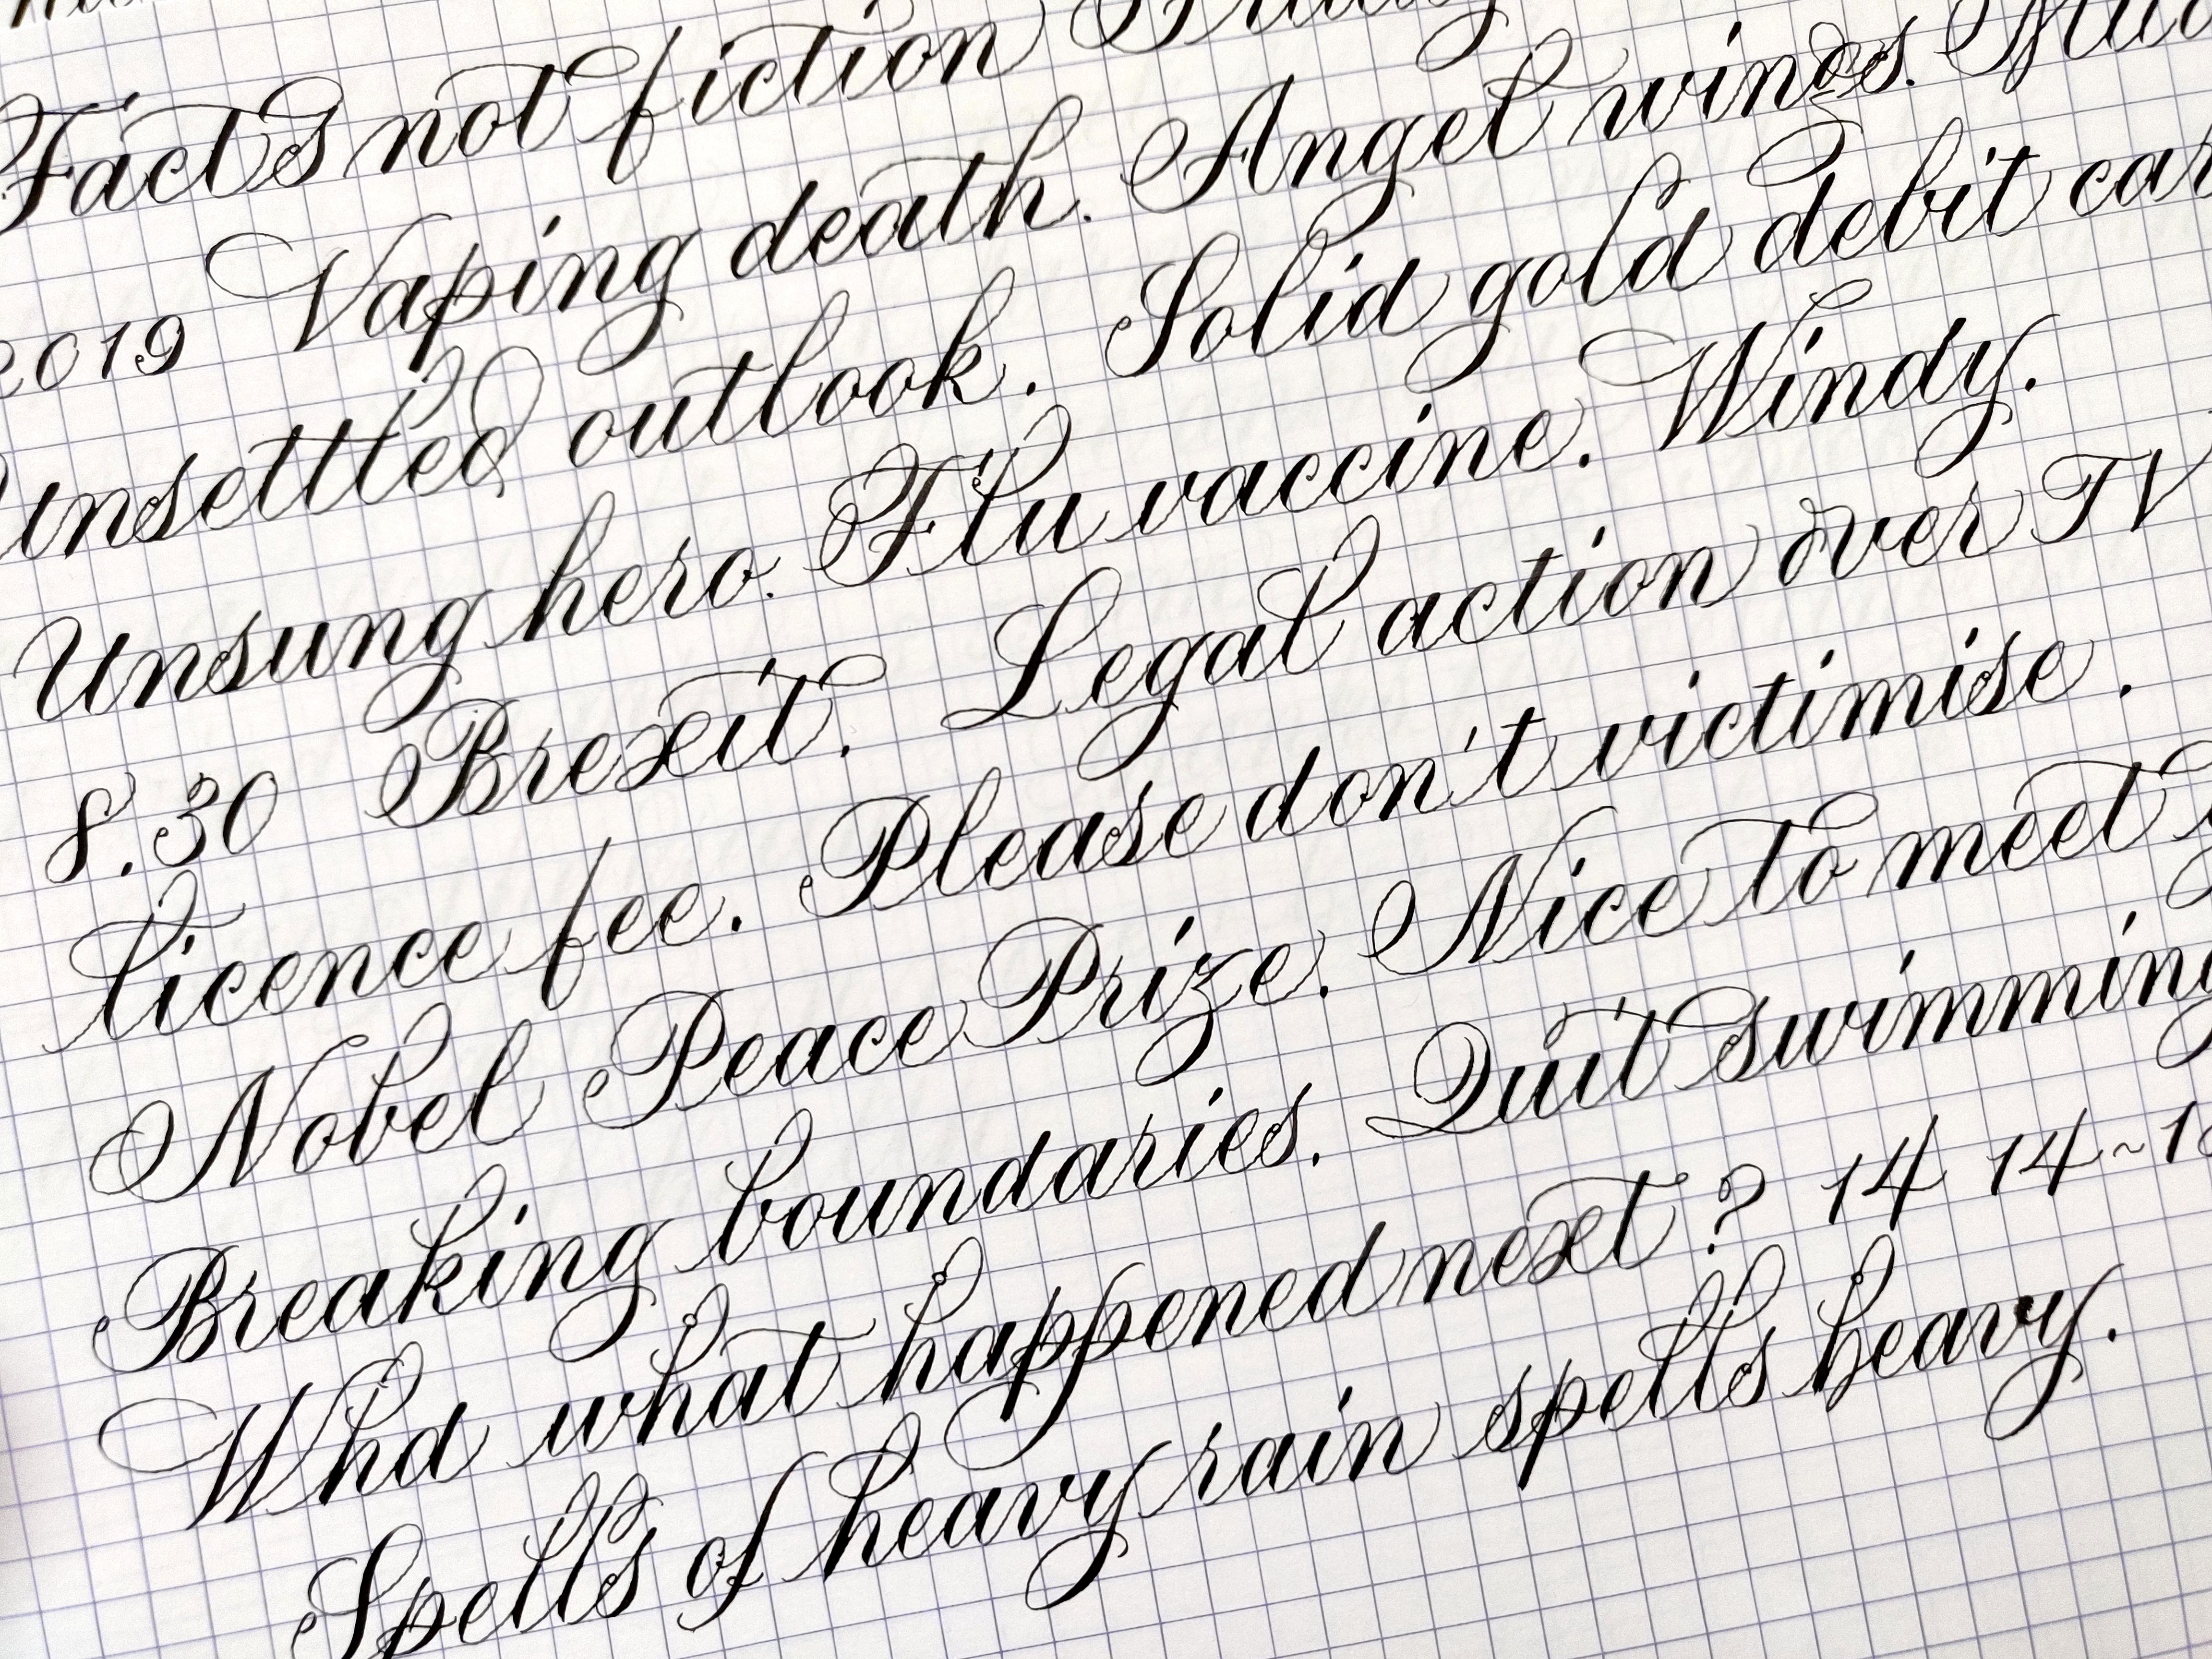 Facts not fiction Friday
2019 Vaping death. Angel wines.
Unsettled outlook. Solid gold debit
Unsung hero. Flu vaccine. Windy.
8.30 Brexit. Legal action over TV
licence fee. Please don't victimise.
Nobel Peace Prize. Nice to meet
Breaking boundaries. Quit swimming
Whd what happened next? 14 14~
Spells of heavy rain spells heavy.